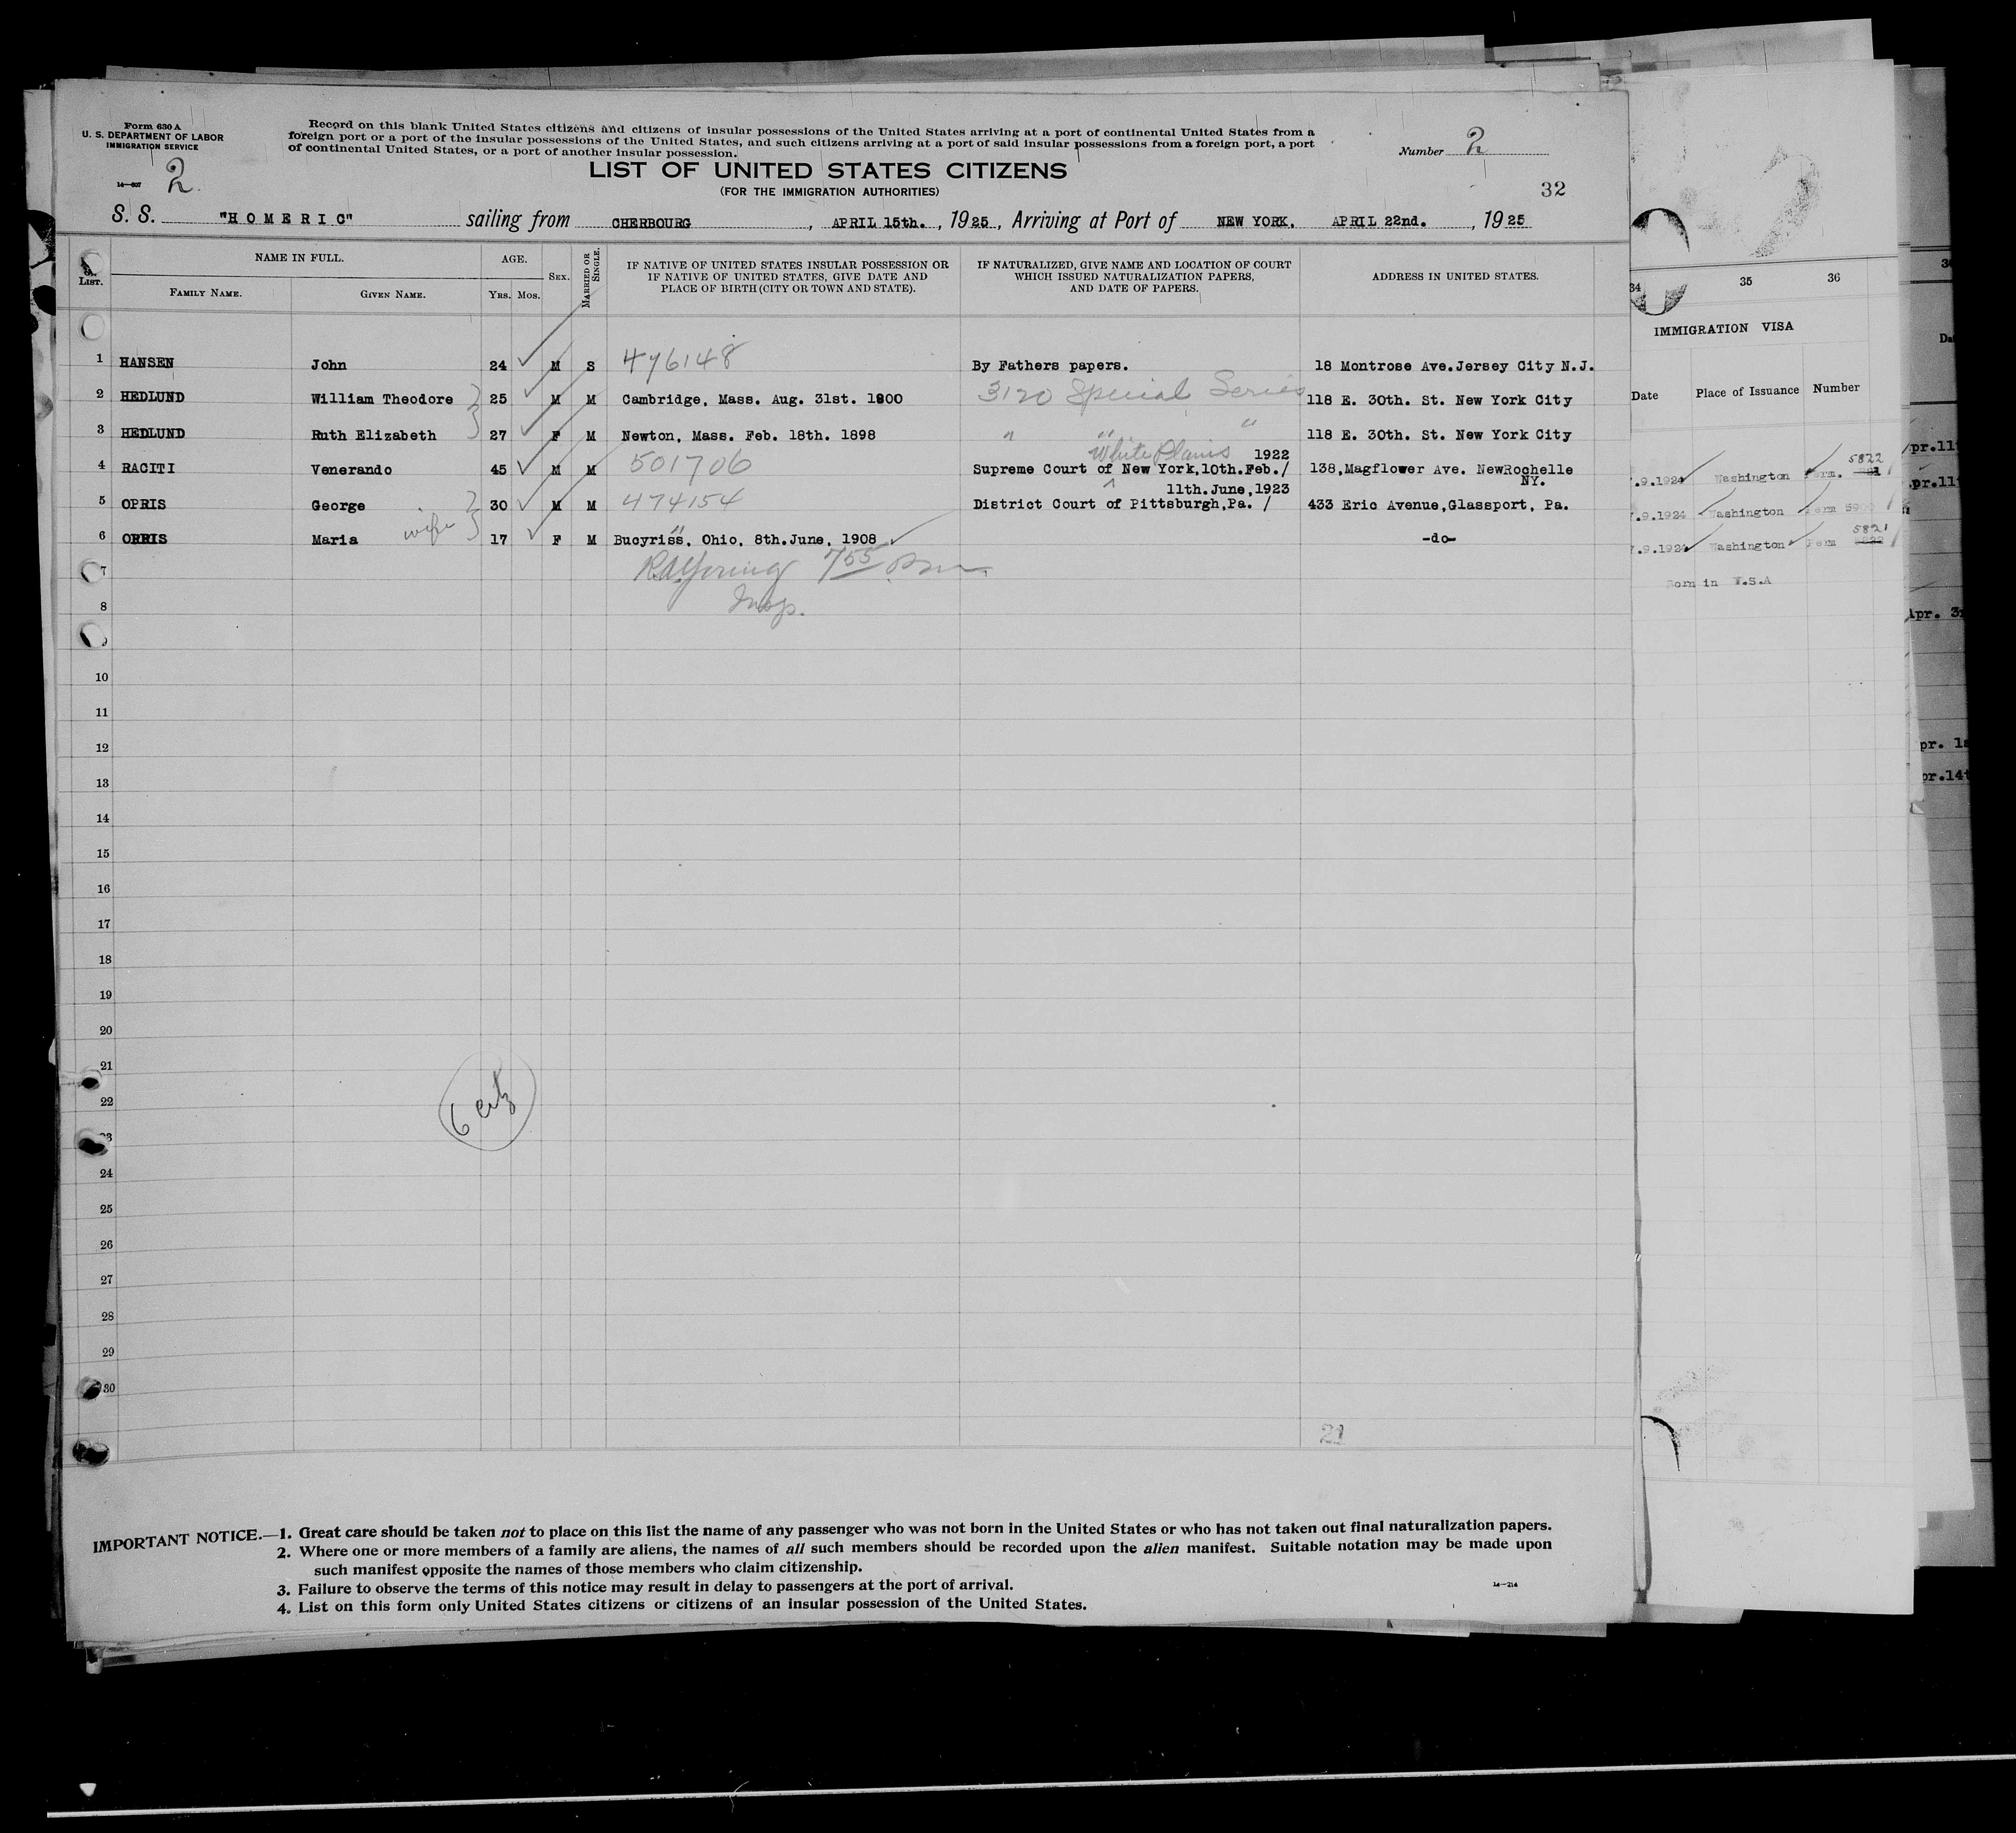 Form 630 A
U. S. DEPARTMENT OF LABOR
IMMIGRATION SERVICE
14—607
2
Record on this blank United States citizens and citizens of insular possessions of the United States arriving at a port of continental United States from a
foreign port or a port of the insular possessions of the United States, and such citizens arriving at a port of said insular possessions from a foreign port, a port
of continental United States, or a port of another insular possession.
Number 2
LIST OF UNITED STATES CITIZENS
(FOR THE IMMIGRATION AUTHORITIES)
32
S. S. "HOMERIC" sailing from CHERBOURG, APRIL 15th., 1925, Arriving at Port of NEW YORK, APRIL 22nd., 1925
List.
NAME IN FULL.
Family Name.
Given Name.
AGE.
Yrs. Mos.
Sex.
Married or Single.
IF NATIVE OF UNITED STATES INSULAR POSSESSION OR
IF NATIVE OF UNITED STATES, GIVE DATE AND
PLACE OF BIRTH (CITY OR TOWN AND STATE).
IF NATURALIZED, GIVE NAME AND LOCATION OF COURT
WHICH ISSUED NATURALIZATION PAPERS,
AND DATE OF PAPERS.
ADDRESS IN UNITED STATES.
1 HANSEN John 24 M S 476148 By Fathers papers. 18 Montrose Ave.Jersey City N.J.
2 HEDLUND William Theodore 25 M M Cambridge, Mass. Aug. 31st. 1900 3120 Special Series 118 E. 30th. St. New York City
3 HEDLUND Ruth Elizabeth 27 F M Newton, Mass. Feb. 18th. 1898 " " " 118 E. 30th. St. New York City
White Plains 1922
4 RACITI Venerando 45 M M 501706 Supreme Court of New York,10th.Feb./ 138,Magflower Ave. NewRochelle
NY.
11th.June,1923
5 OPRIS George 30 M M 474154 District Court of Pittsburgh,Pa. / 433 Eric Avenue,Glassport, Pa.
6 OPRIS Maria wife 17 F M " Bucyriss, Ohio, 8th.June, 1908 -do-
7 755
Insp.
8
10
11
12
13
14
15
16
17
18
19
20
21
22
6 citz
24
25
26
27
28
29
30
21
IMPORTANT NOTICE.—1. Great care should be taken not to place on this list the name of any passenger who was not born in the United States or who has not taken out final naturalization papers.
2. Where one or more members of a family are aliens, the names of all such members should be recorded upon the alien manifest. Suitable notation may be made upon
such manifest opposite the names of those members who claim citizenship.
3. Failure to observe the terms of this notice may result in delay to passengers at the port of arrival.
4. List on this form only United States citizens or citizens of an insular possession of the United States.
14—214
34 35 36
IMMIGRATION VISA
Date Place of Issuance Number
5822
.9.1924 Washington
.9.1924 Washington
5821
.9.1924 Washington
Born in U.S.A
pr.11
pr.11
Apr. 3
pr. 1
pr.14